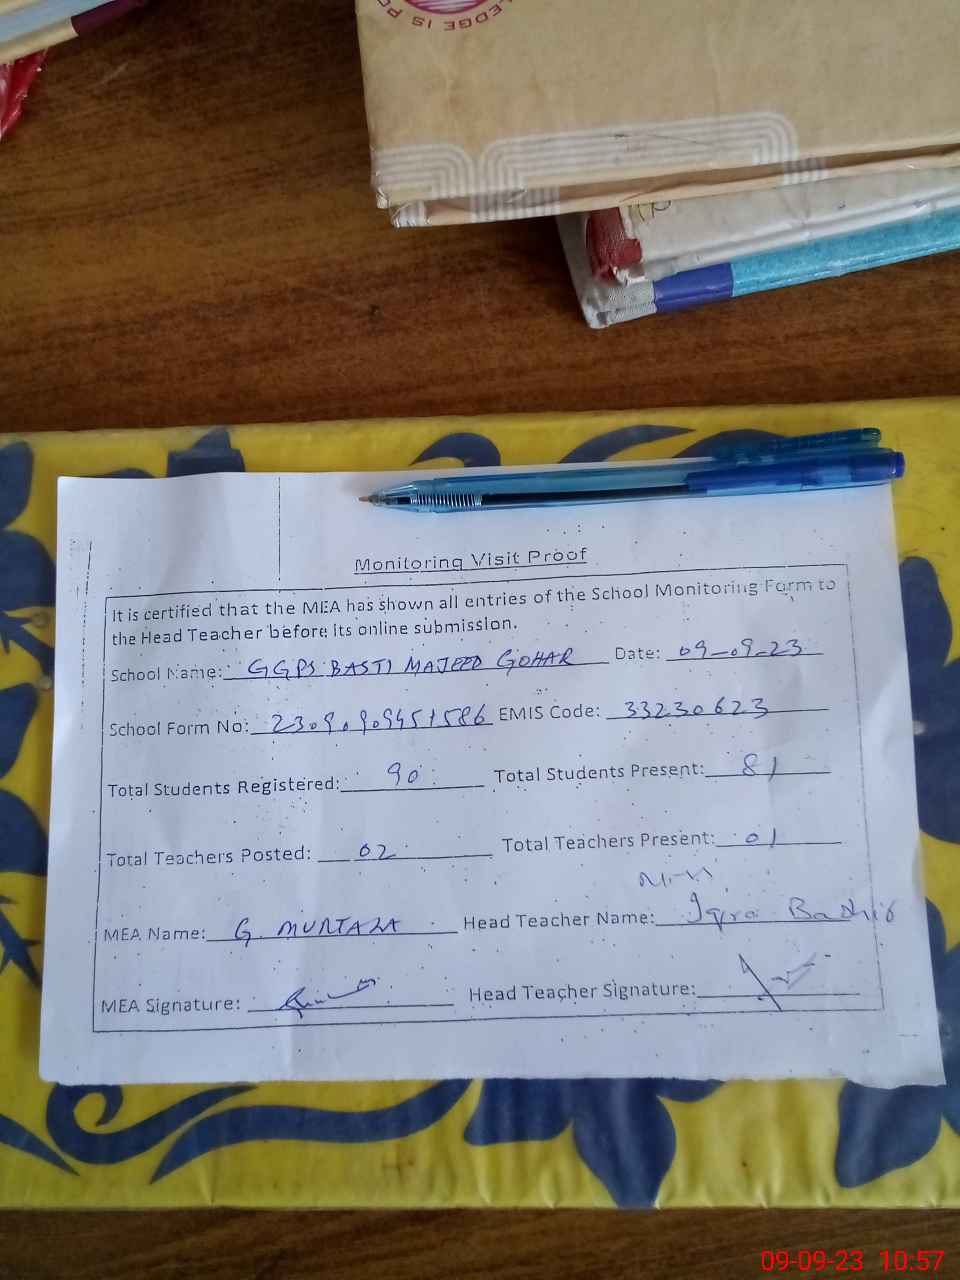 LEDGE IS PO
Monitoring Visit Proof
It is certified that the MEA has shown all entries of the School Monitoring Form to
the Head Teacher before its online submission.
School Name: GGPS BASTI MAJEED GOHAR Date: 09-09-23
School Form No: EMIS Code: 33230623
Total Students Registered: 90 Total Students Present: 81
Total Teachers Posted: 02 Total Teachers Present: 01
MEA Name: G. MURTAZA Head Teacher Name: Iqra Bashir
MEA Signature: Head Teacher Signature:
09-09-23 10:57